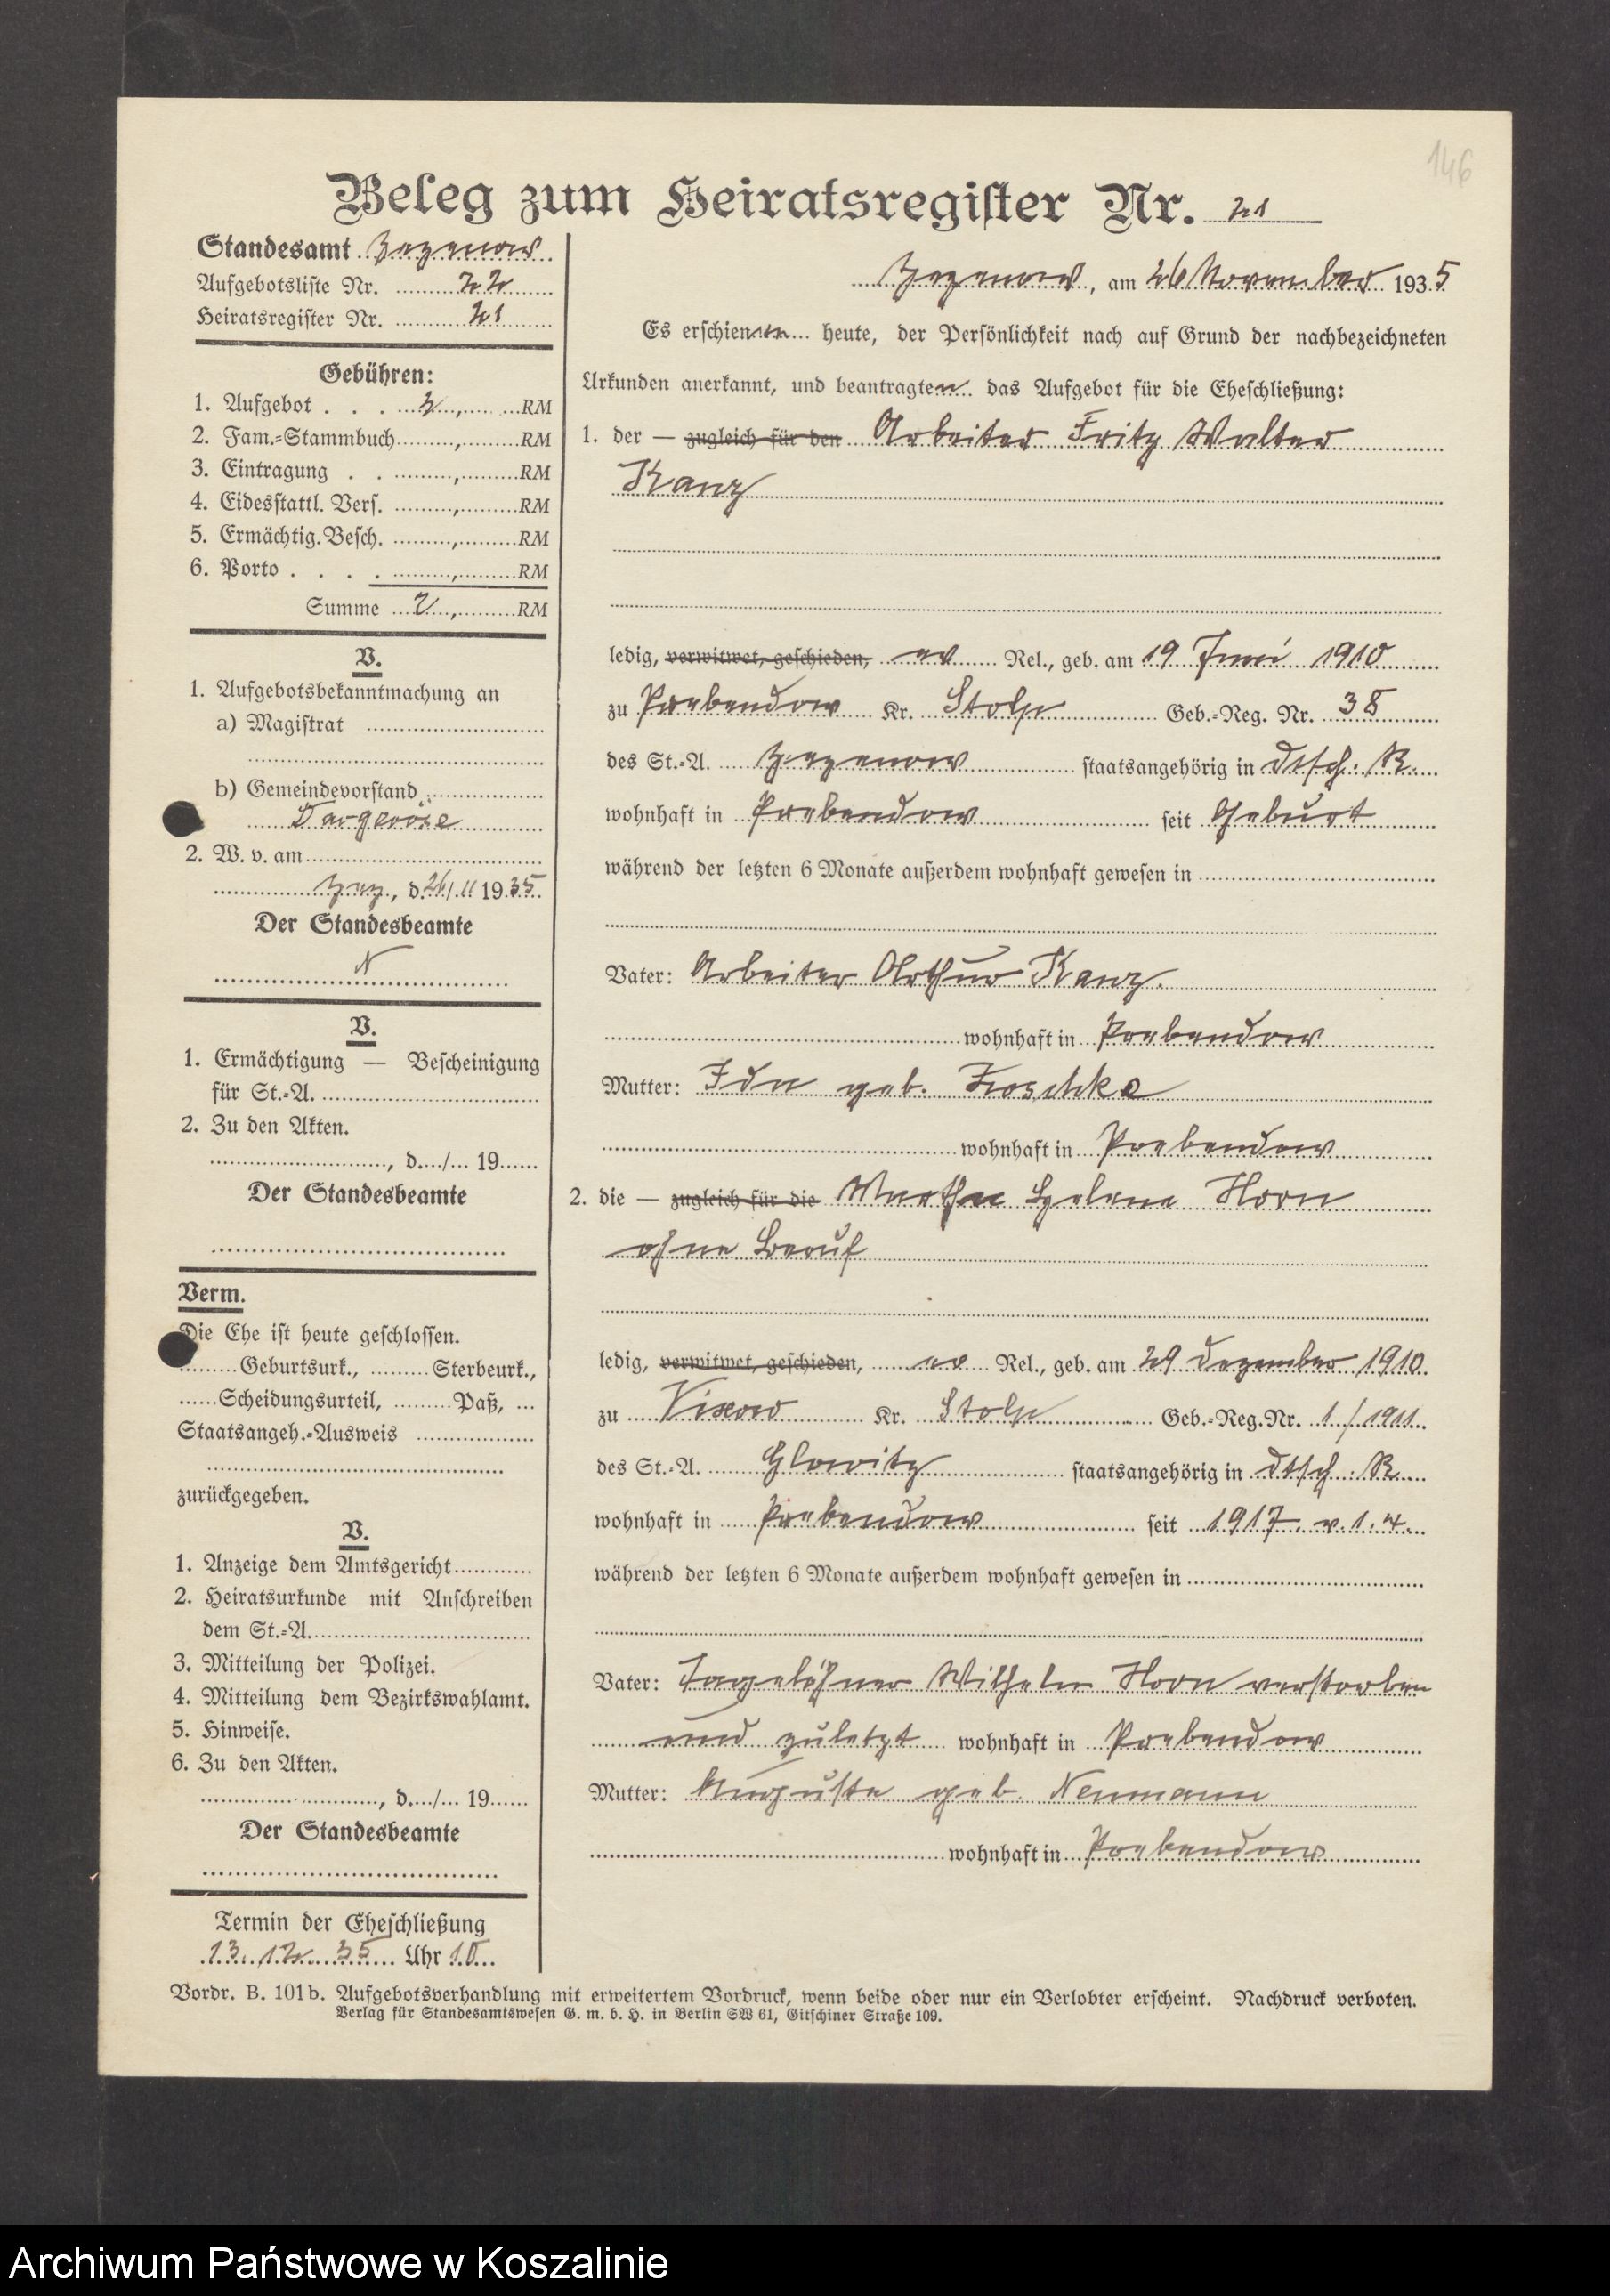 146
Beleg zum Heiratsregister Nr. 21
Standesamt Zezenow
Aufgebotsliste Nr. 22
Heiratsregister Nr. 21
Gebühren:
1. Aufgebot . . . 2, RM
2. Fam.-Stammbuch , RM
3. Eintragung . . , RM
4. Eidesstattl. Vers. , RM
5. Ermächtig. Besch. , RM
6. Porto . . . . , RM
Summe 2, RM
V.
1. Aufgebotsbekanntmachung an
a) Magistrat
b) Gemeindevorstand
Dargeröse
2. W. v. am
Zez, d. 26/11 1935
Der Standesbeamte
N
V.
1. Ermächtigung — Bescheinigung
für St.-A.
2. Zu den Akten.
, d. / 19
Der Standesbeamte
Verm.
Die Ehe ist heute geschlossen.
Geburtsurk., Sterbeurk.,
Scheidungsurteil, Paß,
Staatsangeh.-Ausweis
zurückgegeben.
V.
1. Anzeige dem Amtsgericht
2. Heiratsurkunde mit Anschreiben
dem St.-A.
3. Mitteilung der Polizei.
4. Mitteilung dem Bezirkswahlamt.
5. Hinweise.
6. Zu den Akten.
, d. / 19
Der Standesbeamte
Termin der Eheschließung
13. 12. 35 Uhr 10
Zezenow, am 26 November 1935
Es erschienen heute, der Persönlichkeit nach auf Grund der nachbezeichneten
Urkunden anerkannt, und beantragten das Aufgebot für die Eheschließung:
1. der — zugleich für den Arbeiter Fritz Walter
Kanz
ledig, verwitwet, geschieden, ev Rel., geb. am 19 Juni 1910
zu Prebendow Kr. Stolp Geb.-Reg. Nr. 38
des St.-A. Zezenow staatsangehörig in dtsch. R.
wohnhaft in Prebendow seit Geburt
während der letzten 6 Monate außerdem wohnhaft gewesen in
Vater: Arbeiter Arthur Kanz.
wohnhaft in Prebendow
Mutter: Ida geb. Froschke
wohnhaft in Prebendow
2. die — zugleich für die Martha Helene Horn
ohne Beruf
ledig, verwitwet, geschieden, ev Rel., geb. am 29 Dezember 1910
zu Vixow Kr. Stolp Geb.-Reg. Nr. 1/1911
des St.-A. Glowitz staatsangehörig in dtsch. R.
wohnhaft in Prebendow seit 1917 v. 1. 4.
während der letzten 6 Monate außerdem wohnhaft gewesen in
Vater: Tagelöhner Wilhelm Horn verstorben
und zuletzt wohnhaft in Prebendow
Mutter: Auguste geb. Neumann
wohnhaft in Prebendow
Vordr. B. 101b. Aufgebotsverhandlung mit erweitertem Vordruck, wenn beide oder nur ein Verlobter erscheint. Nachdruck verboten.
Verlag für Standesamtswesen G. m. b. H. in Berlin SW 61, Gitschiner Straße 109.
Archiwum Państwowe w Koszalinie